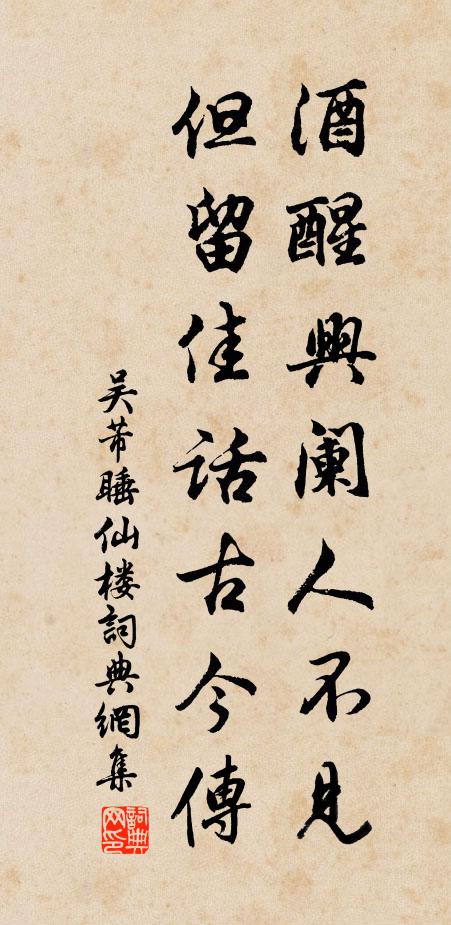 酒醒興闌人不見
但留佳話古今傳
吴芾睡仙楼詞典網集
詞典網印